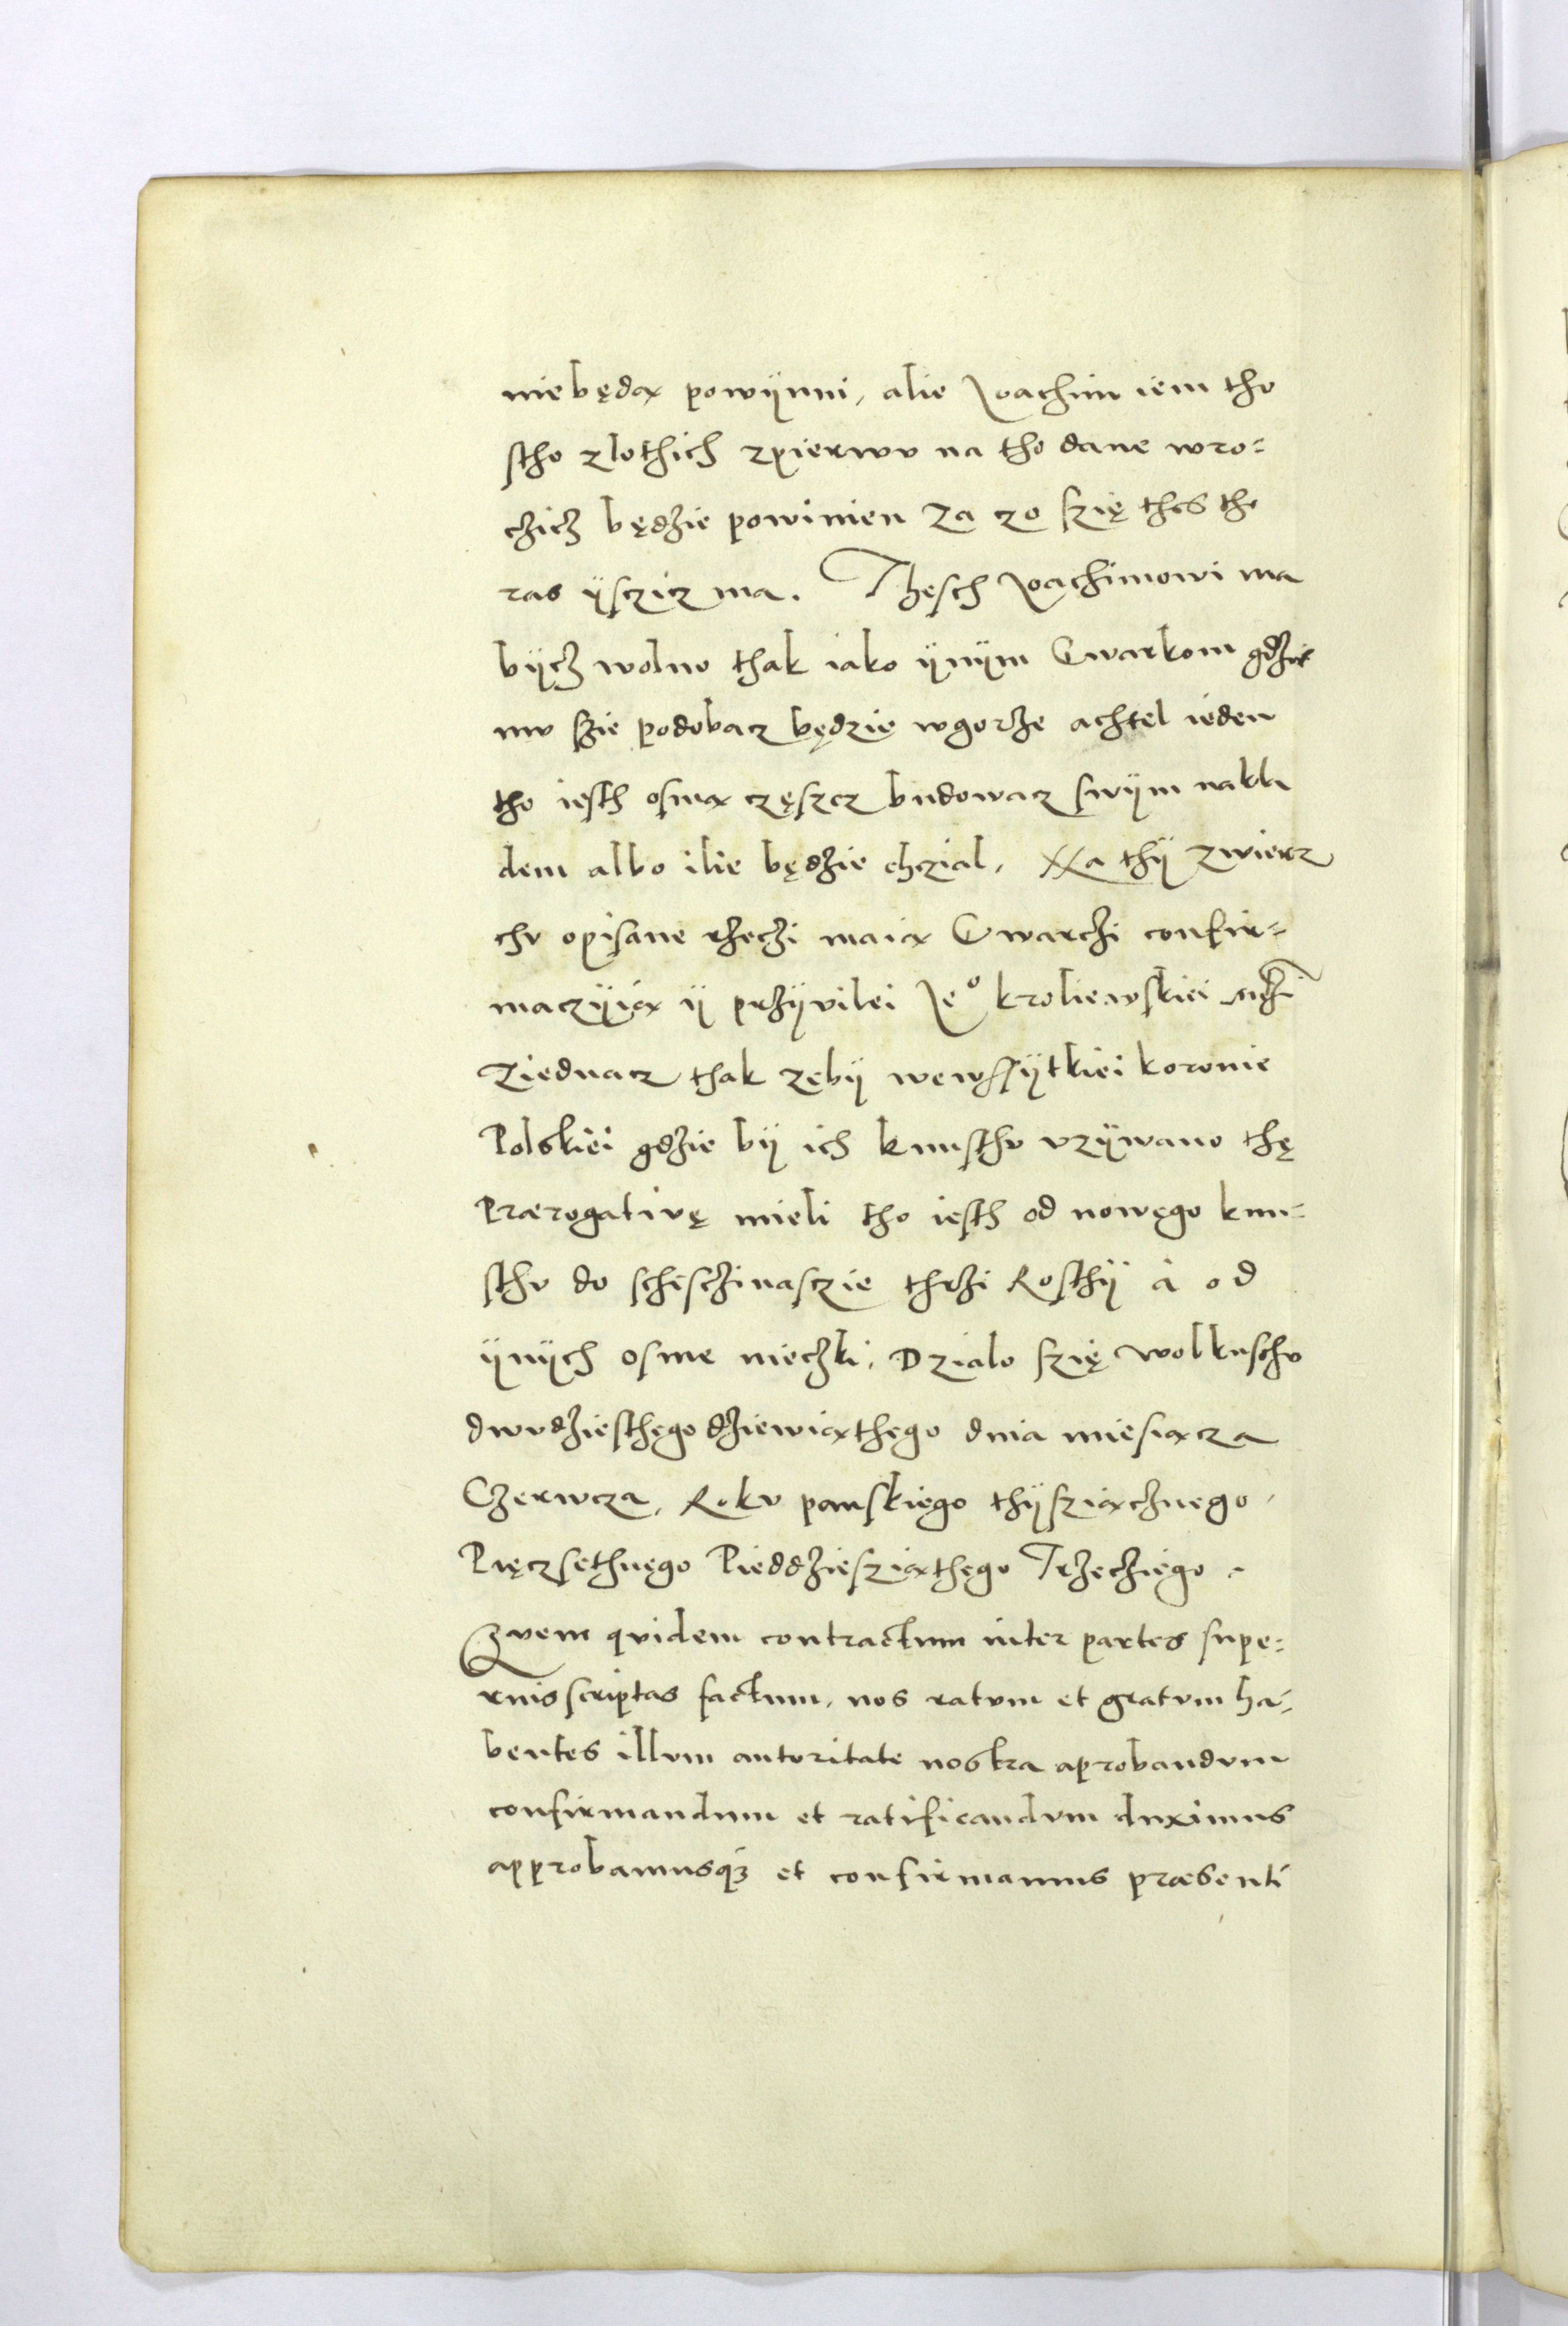 niebędą powÿnni, alie Joachim iem tho
stho zlothich zpierwv na tho dane wro=
czicz będzie powinien za czo szię thes tho
ras ÿsczicz ma. Thesch Joachimowi ma
bÿcz wolno thak iako ÿnÿm Gwarkom gdzie
mv szie podobacz będzię wgorze achtel ieden
tho iesth osmą częszcz budowacz swÿm nakla
dem albo ilie będzie chczial. Na thÿ zwierz
chv opisane rzeczi maią Gwarczi confir=
maczÿią ÿ przÿvilei Je° kroliewskiei
ziednacz thak zębÿ wewssÿtkiei koronie
Polskiei gdzie bÿ ich kunsthv vzÿwano thę
Prærogativę mieli tho iesth od nowęgo kun=
sthv do scheschinasczie thrzi Rosthÿ à od
ÿnÿch osme nieczki, Dzialo szię wolkuschv
dwvdziesthęgo dziewiąthęgo dnia miesiącza
Czerwcza, Rokv panskiego thÿsziącznego,
Pięczsethnęgo Pieddziesziąthęgo Trzecziego.
Qvem qvidem contractum inter partes supe=
rius scriptas factum, nos ratvm et gratvm ha=
bentes illvm autoritate nostra aprobandvm
confirmandum et ratificandvm duximus
approbamusq3 et confirmamus præsenti